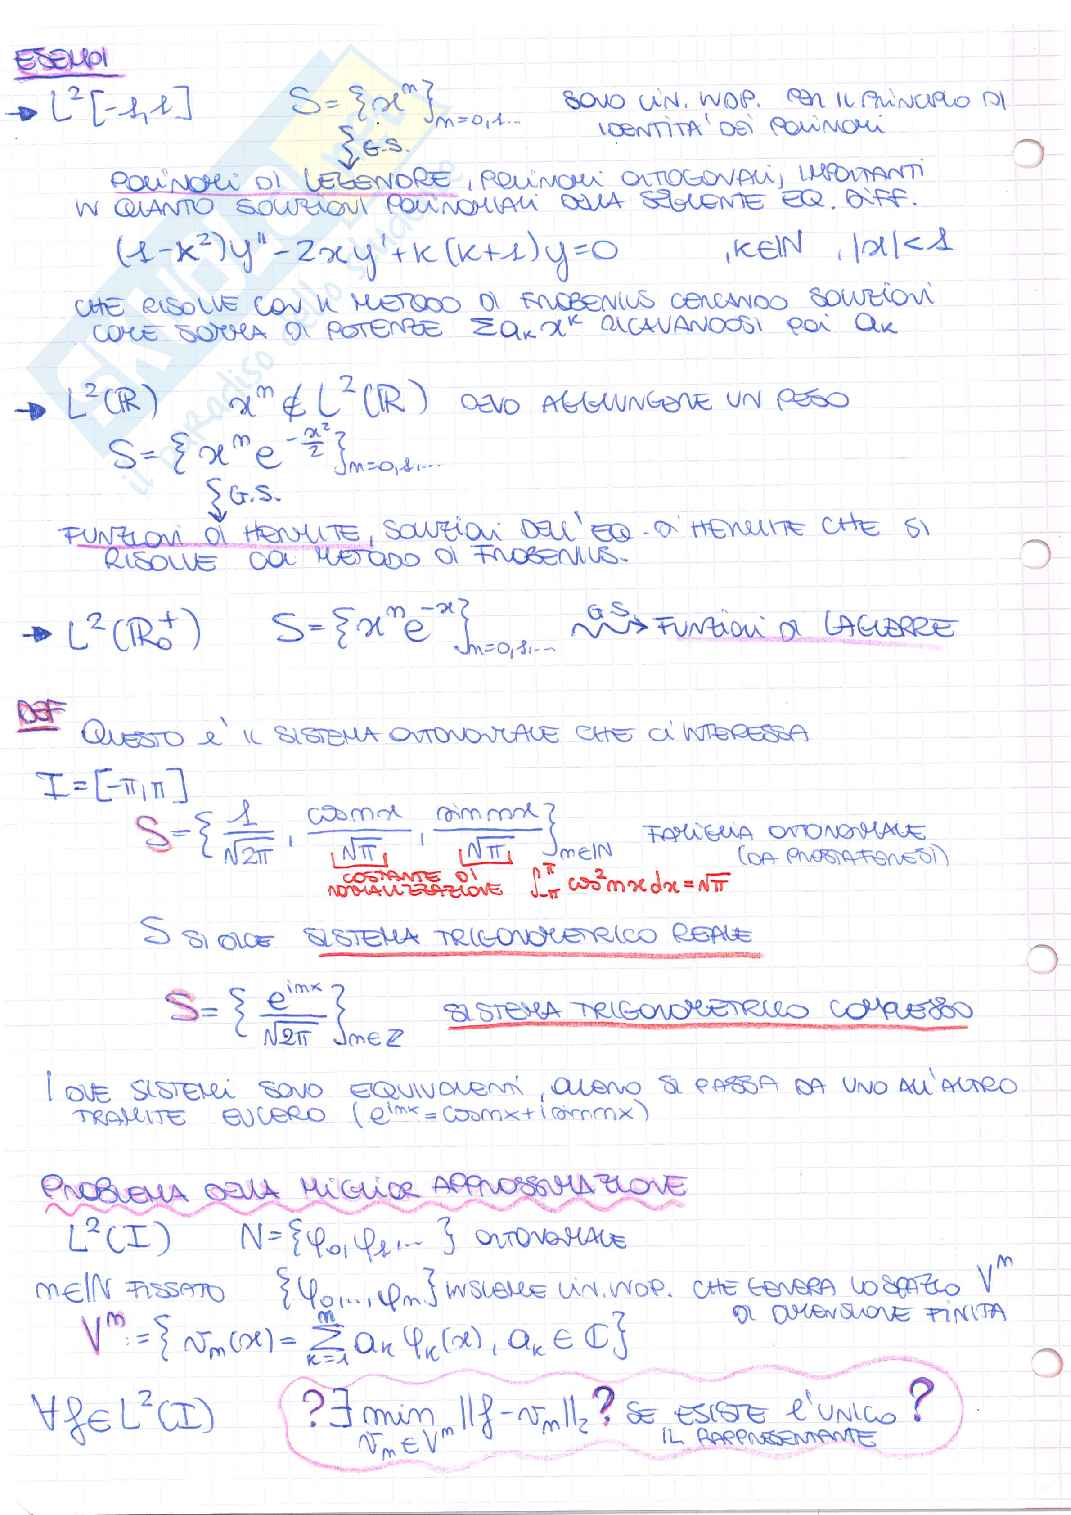 ESEMPI
→ L²[-1,1] S = {xⁿ}ₙ₌₀,₁... SONO LIN. INDIP. PER IL PRINCIPIO DI
IDENTITA' DEI POLINOMI
↓ G.S.
POLINOMI DI LEGENDRE, POLINOMI ORTOGONALI, IMPORTANTI
IN QUANTO SOLUZIONI POLINOMIALI DELLA SEGUENTE EQ. DIFF.
(1-x²)y"-2xy'+k(k+1)y=0 , k∈ℕ , |x|<1
CHE RISOLVE CON IL METODO DI FROBENIUS CERCANDO SOLUZIONI
COME SOMMA DI POTENZE Σaₖxᵏ RICAVANDOSI POI aₖ
→ L²(ℝ) xⁿ ∉ L²(ℝ) DEVO AGGIUNGERE UN PESO
S = {xⁿ e^(-x²/2)}ₙ₌₀,₁,...
↓ G.S.
FUNZIONI DI HERMITE, SOLUZIONI DELL'EQ. DI HERMITE CHE SI
RISOLVE COL METODO DI FROBENIUS.
→ L²(ℝ₀⁺) S = {xⁿ e^(-x)}ₙ₌₀,₁,... G.S. → FUNZIONI DI LAGUERRE
DEF QUESTO E' IL SISTEMA ORTONORMALE CHE CI INTERESSA
I = [-π,π]
S = {1/√2π , cosnx/√π , sinnx/√π}ₙ∈ℕ FAMIGLIA ORTONORMALE
(DA PROSTAFERESI)
COSTANTE DI
NORMALIZZAZIONE ∫₋π^π cos²nx dx = √π
S SI DICE SISTEMA TRIGONOMETRICO REALE
S = {e^(inx)/√2π}ₙ∈ℤ SISTEMA TRIGONOMETRICO COMPLESSO
I DUE SISTEMI SONO EQUIVALENTI, SI PASSA DA UNO ALL'ALTRO
TRAMITE EULERO (e^(inx)=cosnx+isinnx)
PROBLEMA DELLA MIGLIOR APPROSSIMAZIONE
L²(I) N = {φ₀,φ₁,... } ORTONORMALE
n∈ℕ FISSATO {φ₀,...,φₙ} INSIEME LIN. INDIP. CHE GENERA LO SPAZIO Vⁿ
DI DIMENSIONE FINITA
Vⁿ := {vₙ(x) = Σₖ₌₁ⁿ aₖ φₖ(x), aₖ ∈ ℂ}
∀f∈L²(I) ? ∃ min vₙ∈Vⁿ ||f-vₙ||₂ ? SE ESISTE E' UNICO ?
IL RAPPRESENTANTE